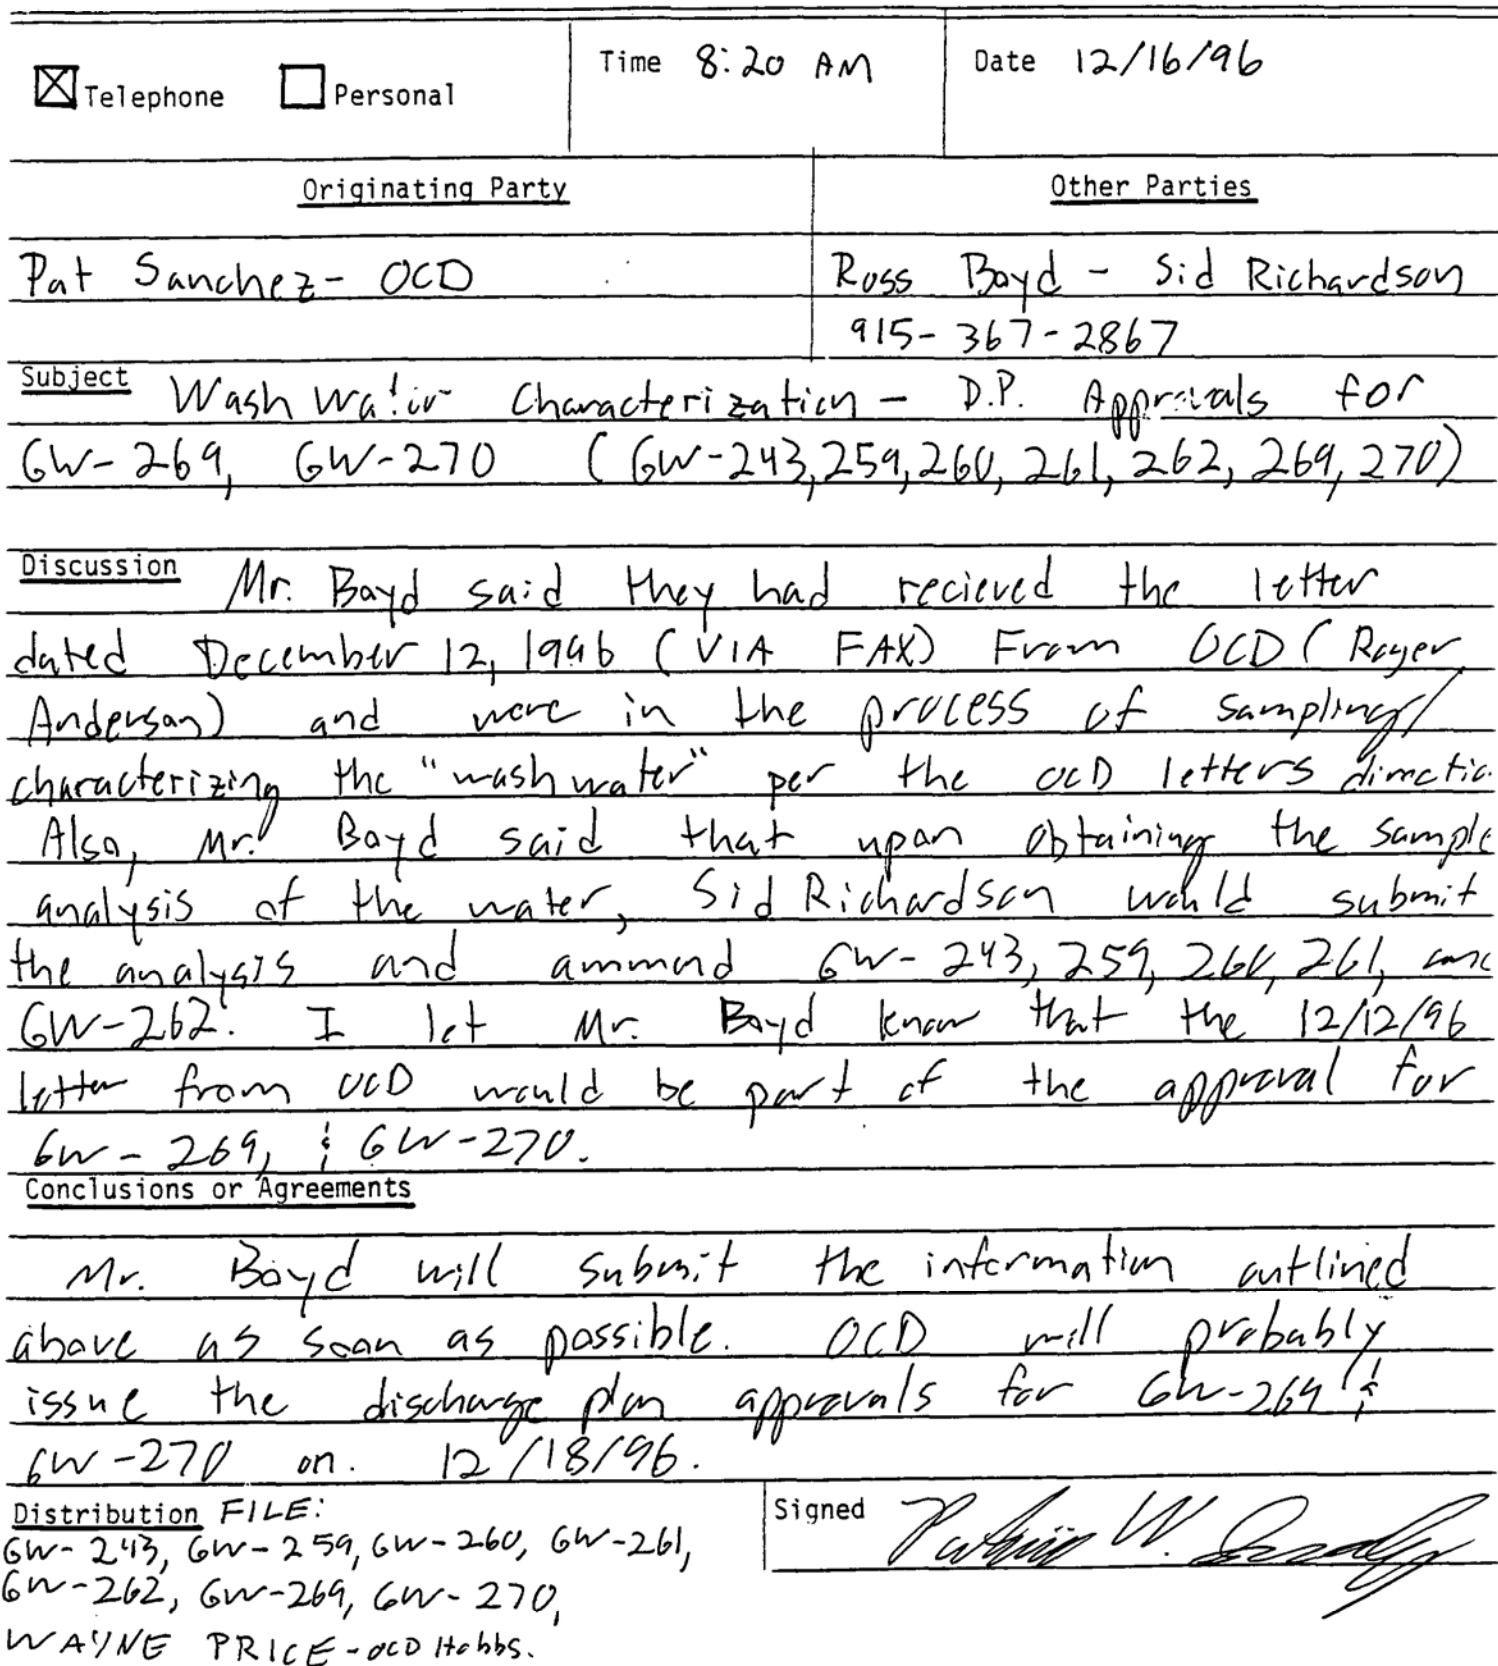 ☒ Telephone ☐ Personal
Time 8:20 AM
Date 12/16/96
Originating Party
Other Parties
Pat Sanchez - OCD
Ross Boyd - Sid Richardson
915-367-2867
Subject Wash Water Characterization - D.P. Approvals for
GW-269, GW-270 (GW-243, 259, 260, 261, 262, 269, 270)
Discussion Mr. Boyd said they had recieved the letter
dated December 12, 1996 (VIA FAX) From OCD (Roger
Anderson) and were in the process of sampling/
characterizing the "wash water" per the OCD letters directio
Also, Mr. Boyd said that upon obtaining the sample
analysis of the water, Sid Richardson would submit
the analysis and ammend GW-243, 259, 260, 261, and
GW-262. I let Mr. Boyd know that the 12/12/96
letter from OCD would be part of the approval for
GW-269, & GW-270.
Conclusions or Agreements
Mr. Boyd will submit the information outlined
above as soon as possible. OCD will probably
issue the discharge plan approvals for GW-269 &
GW-270 on. 12/18/96.
Distribution FILE:
GW-243, GW-259, GW-260, GW-261,
GW-262, GW-269, GW-270,
WAYNE PRICE - OCD Hobbs.
Signed Patricio W. Sanchez